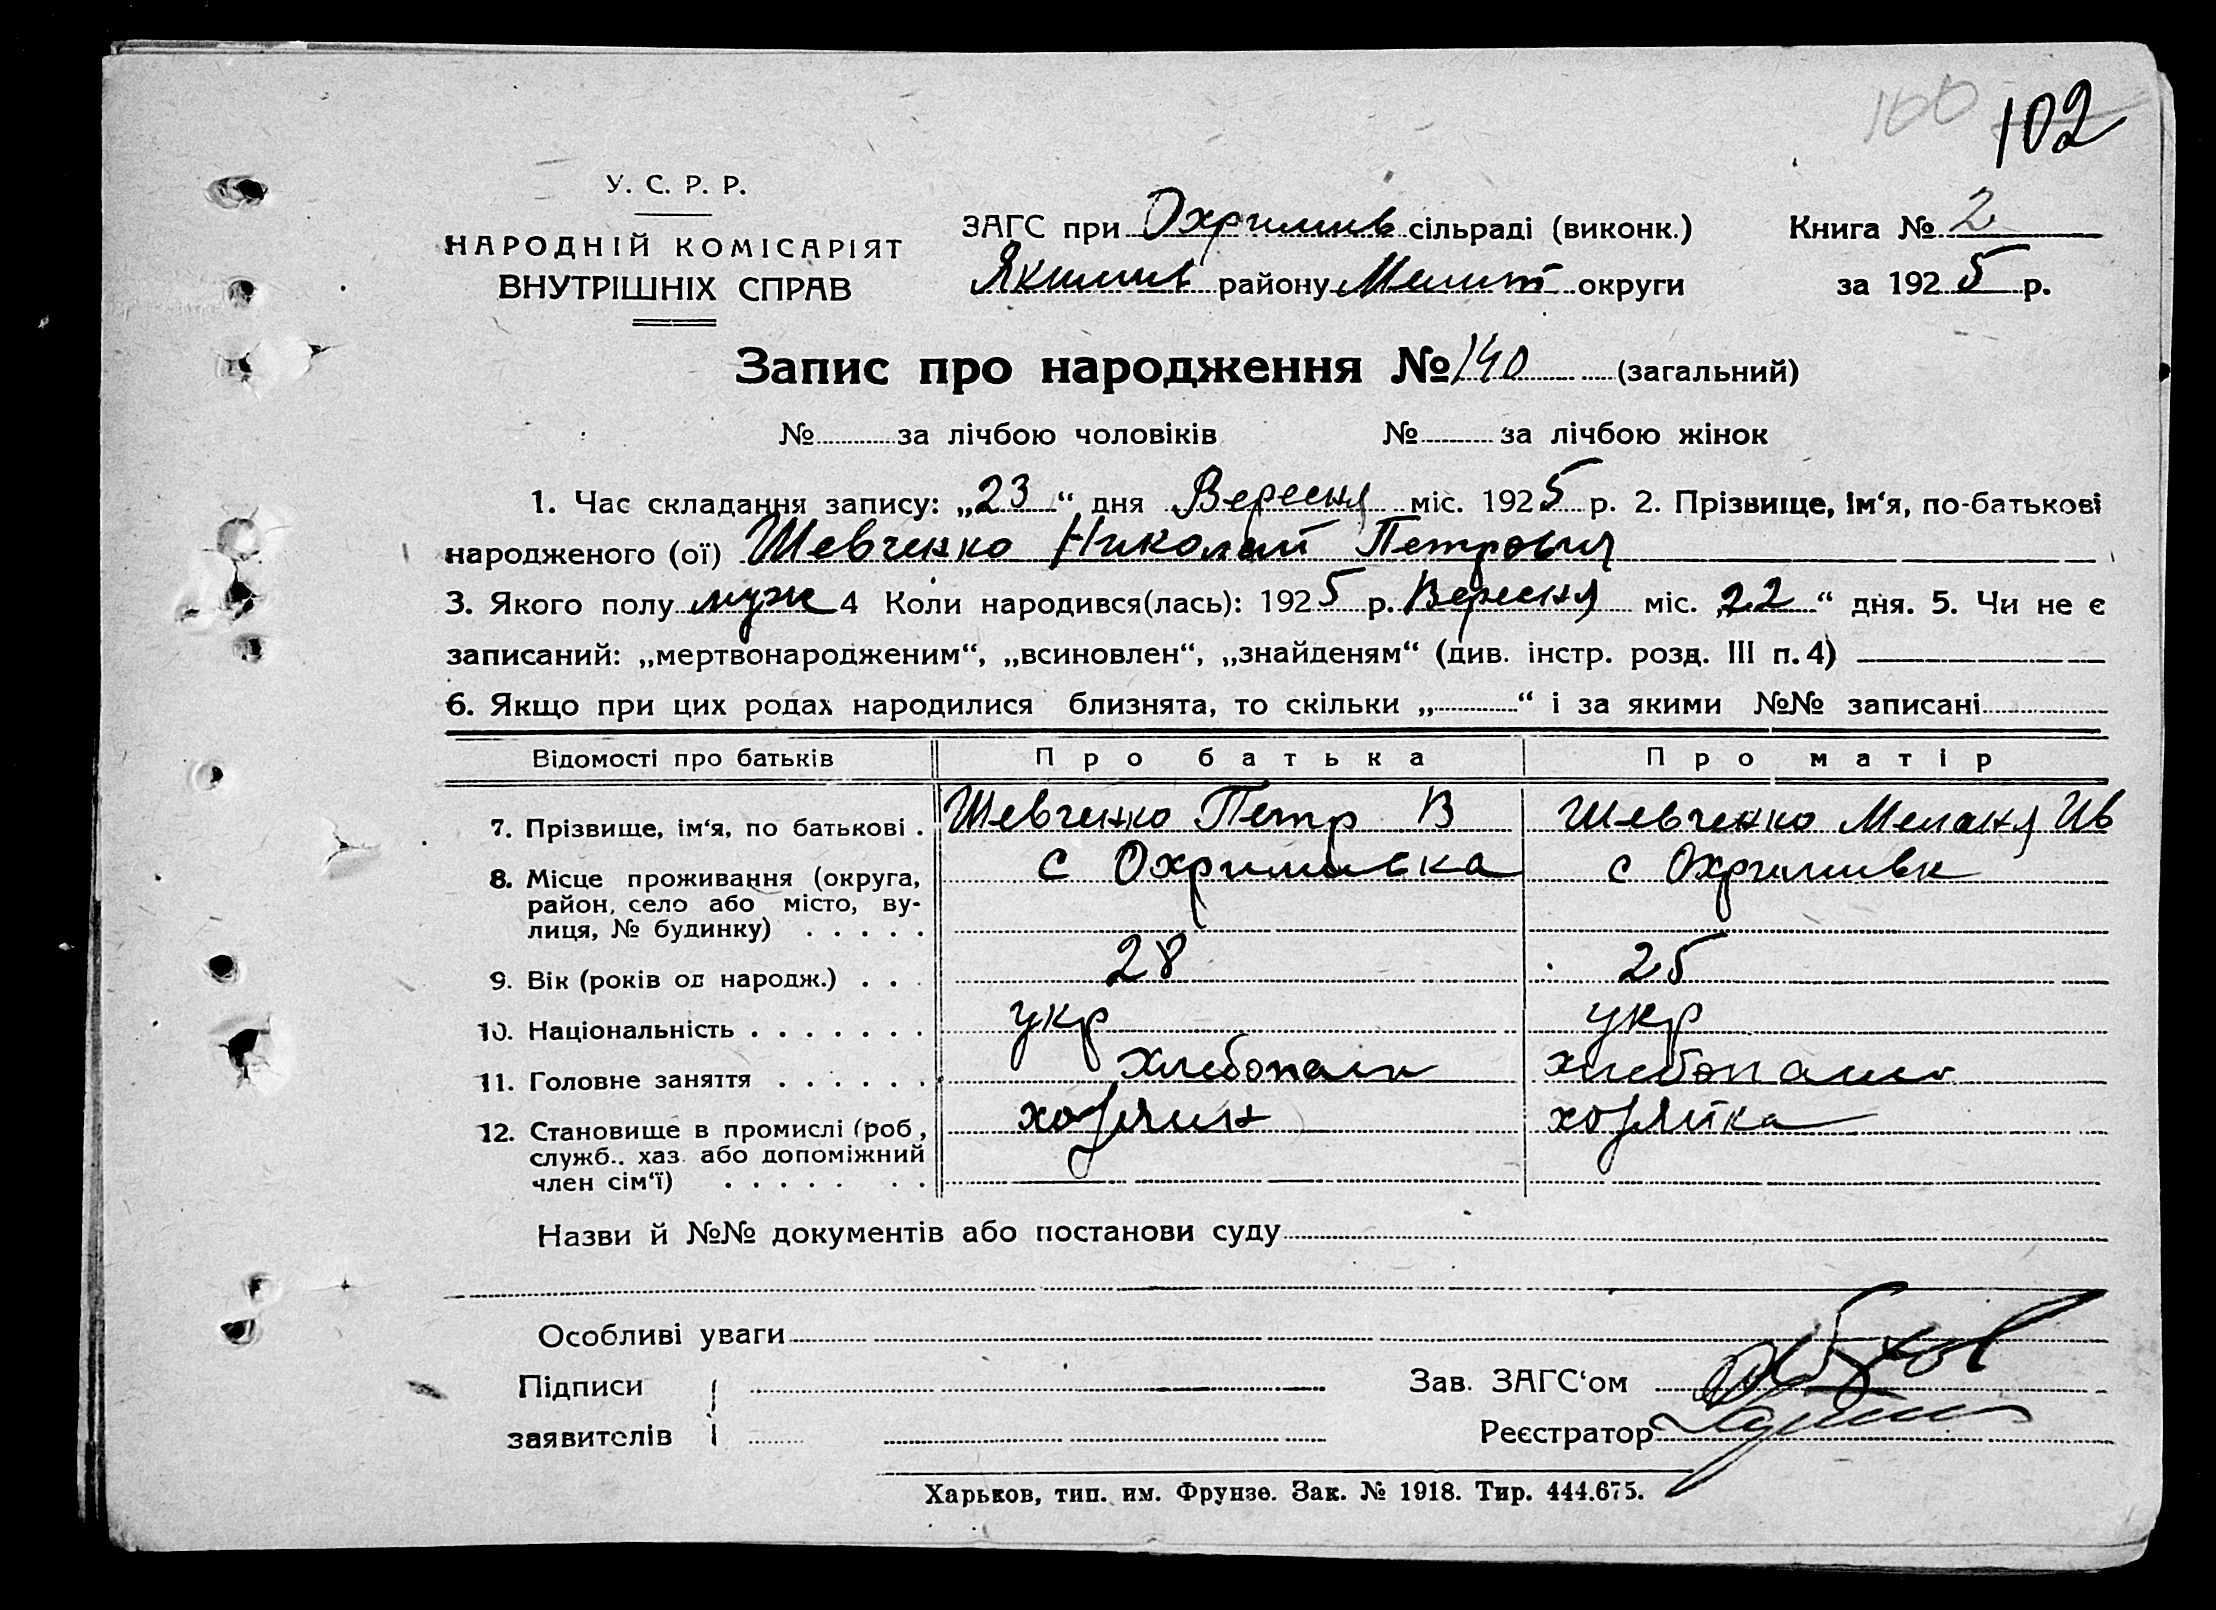 100 102
У. С. Р. Р.
НАРОДНІЙ КОМІСАРІЯТ
ВНУТРІШНІХ СПРАВ
ЗАГС при Охримив сільраді (виконк.)
Якимив району Мелит округи
Книга № 2
за 1925 р.
Запис про народження № 140 (загальний)
№ за лічбою чоловіків № за лічбою жінок
1. Час складання запису: „23“ дня Вересня міс. 1925 р. 2. Прізвище, ім‘я, по-батькові
народженого (ої) Шевченко Николай Петрович
3. Якого полу муж 4 Коли народився(лась): 1925 р. Вересня міс. „22“ дня. 5. Чи не є
записаний: „мертвонародженим“, „всиновлен“, „знайденям“ (див. інстр. розд. III п. 4)
6. Якщо при цих родах народилися близнята, то скільки „ “ і за якими №№ записані
Відомості про батьків Про батька Про матір
7. Прізвище, ім‘я, по батькові . Шевченко Петр В Шевченко Меланя Ив
8. Місце проживання (округа, район, село або місто, вулиця, № будинку) . . . . . с Охримивка с Охримивк
9. Вік (років од народж.) . . . 28 25
10. Національність . . . . . . . укр укр
11. Головне заняття . . . . . . хлебопаш хлебопаш
12. Становище в промислі (роб., служб., хаз. або допоміжний член сім‘ї) . . . . . . . хозяин хозяйка
Назви й №№ документів або постанови суду
Особливі уваги
Підписи
заявителів
Зав. ЗАГС‘ом
Реєстратор
Харьков, тип. им. Фрунзе. Зак. № 1918. Тир. 444.675.